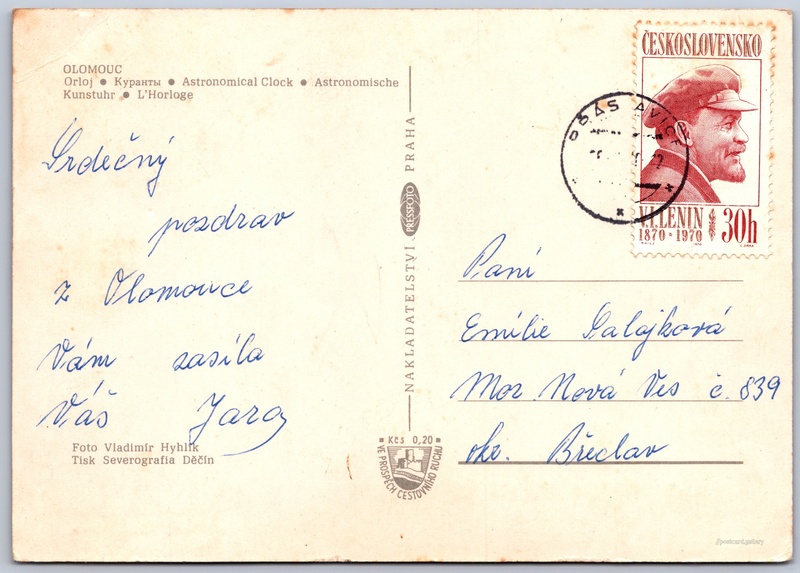 OLOMOUC
Orloj ● Куранты ● Astronomical Clock ● Astronomische
Kunstuhr ● L'Horloge
Srdečný
pozdrav
z Olomouce
Vám zasíla
Váš Jara
Foto Vladimír Hyhlík
Tisk Severografia Děčín
NAKLADATELSTVÍ PRESSFOTO PRAHA
Kčs 0,20
VE PROSPĚCH CESTOVNÍHO RUCHU
ČESKOSLOVENSKO
V.I.LENIN
1870 • 1970
30h
Paní
Emílie Salajková
Mor. Nová Ves č. 839
okr. Břeclav